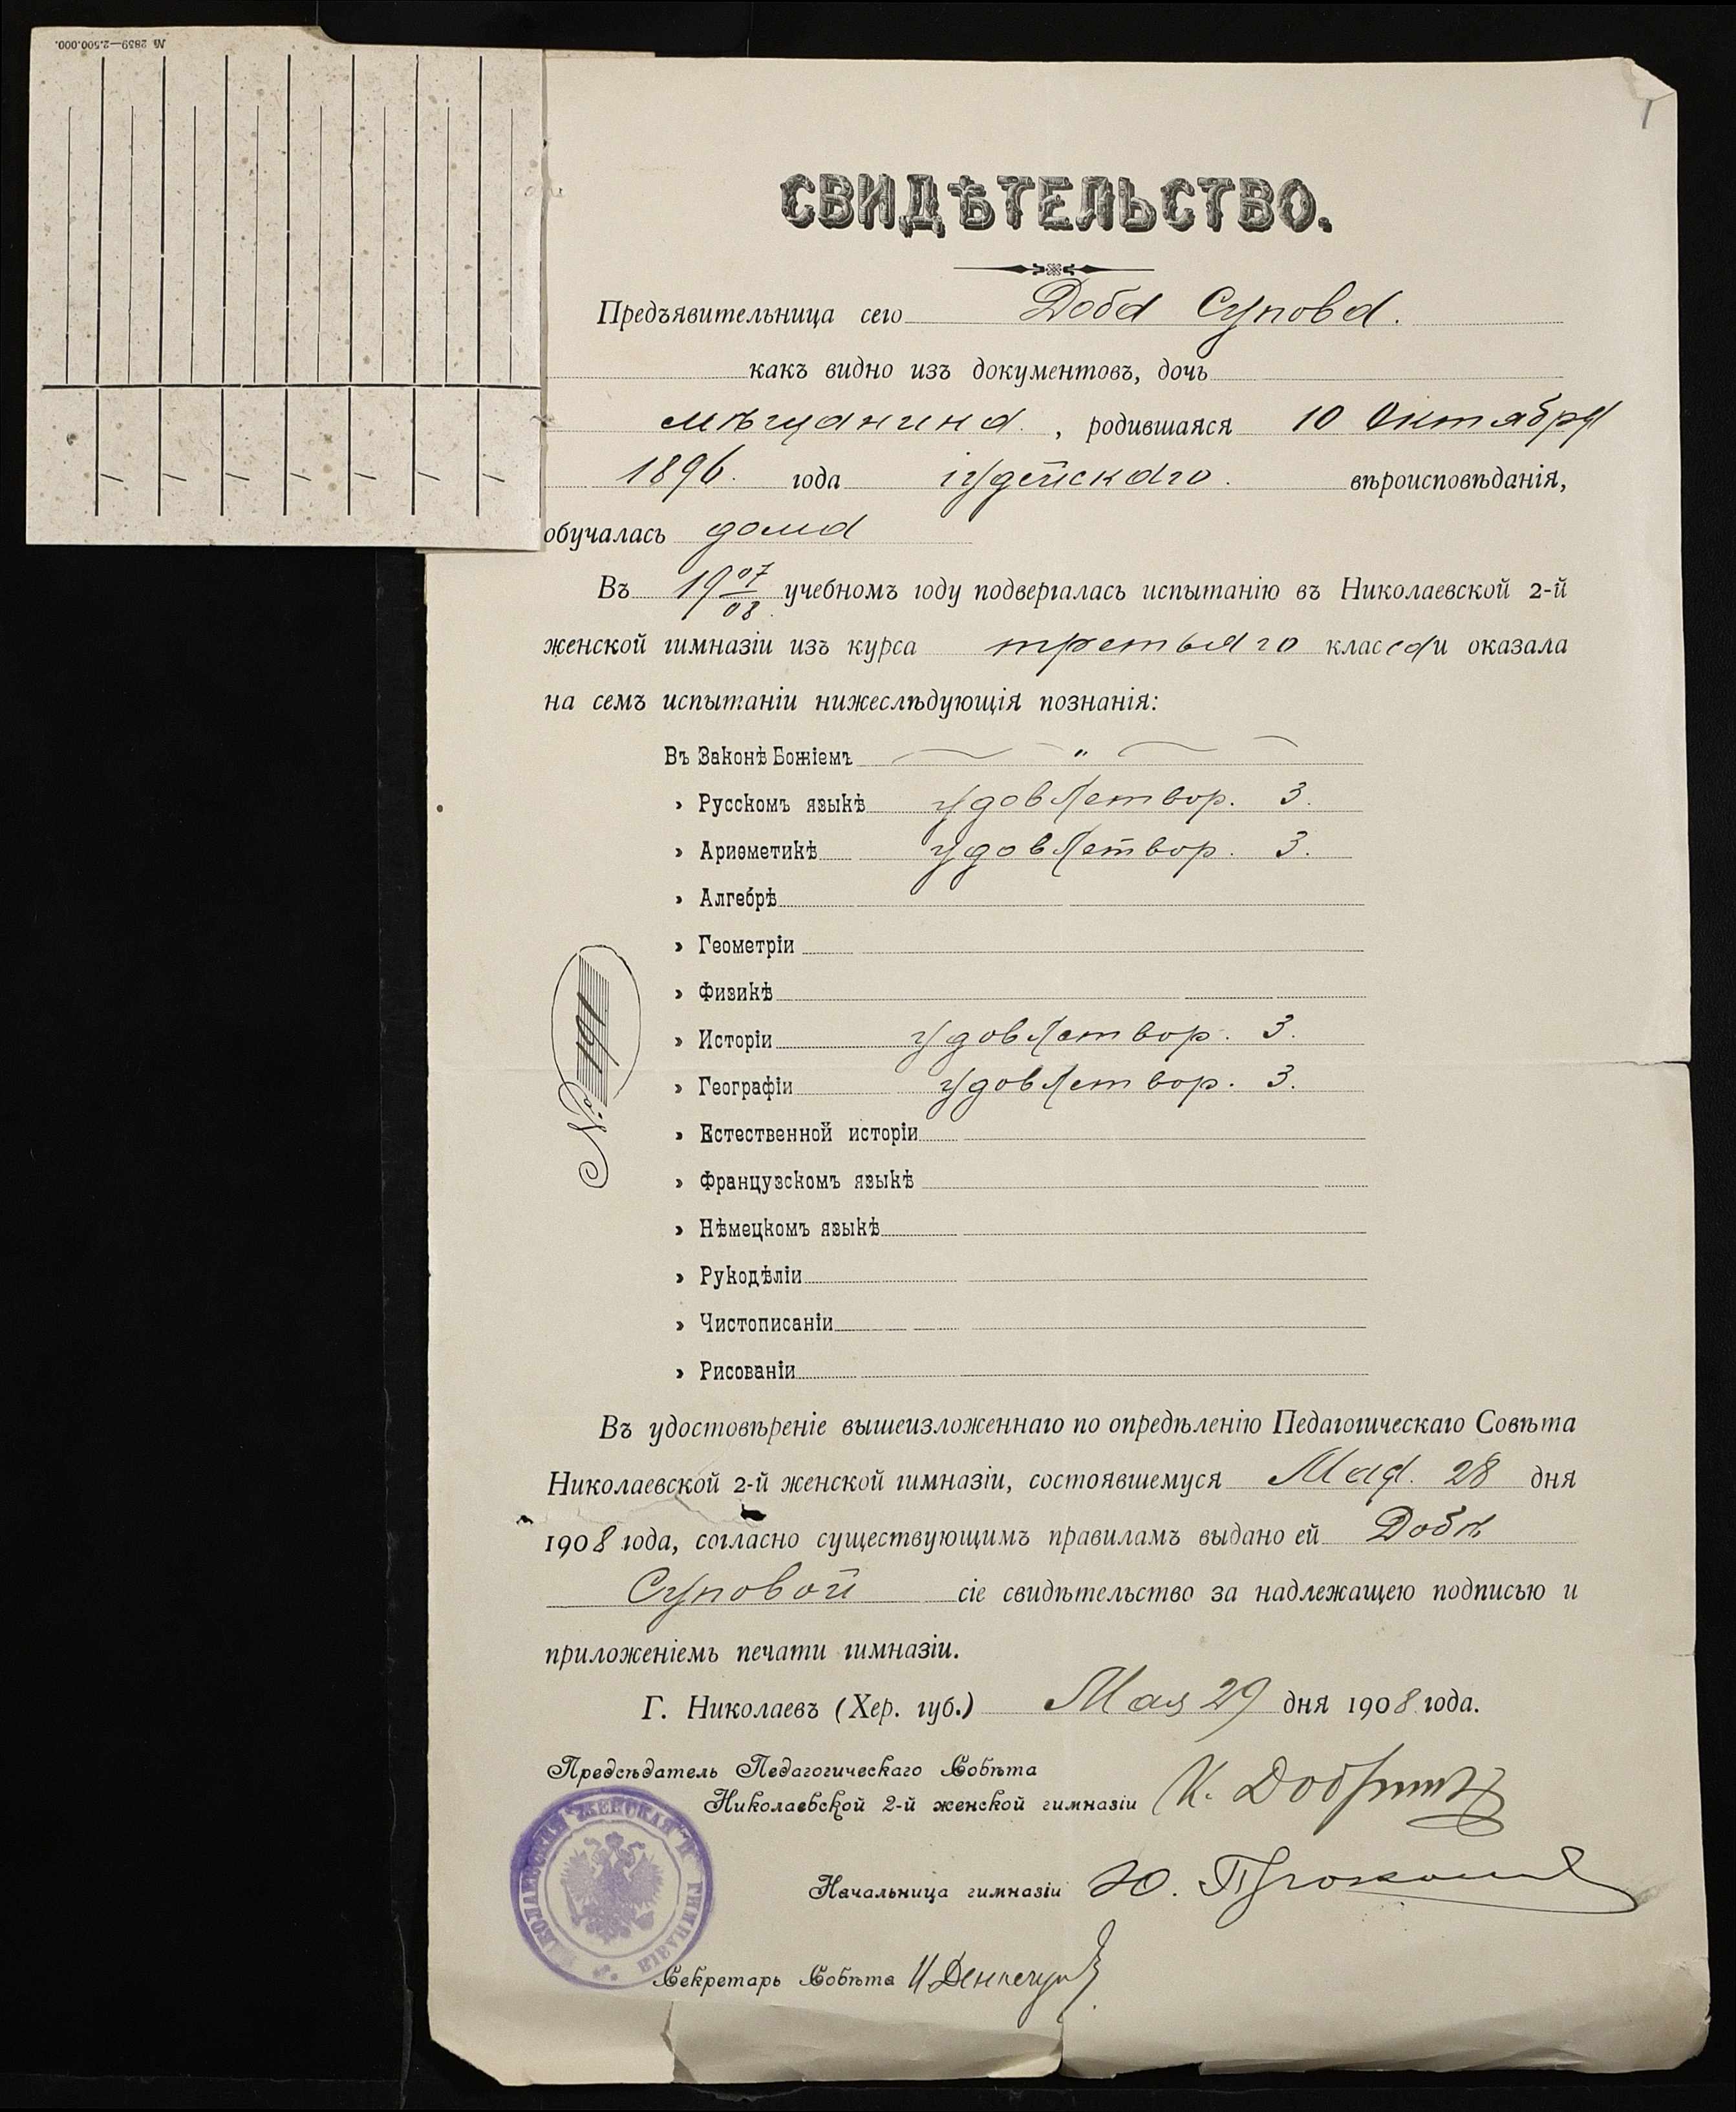 № 2859—2.500.000.
СВИДѢТЕЛЬСТВО.
Предъявительница сего Доба Супова.
какъ видно изъ документовъ, дочь
мѣщанина, родившаяся 10 Октября
1896. года іудейскаго. вѣроисповѣданія,
обучалась дома
Въ 1907/08. учебномъ году подвергалась испытанію въ Николаевской 2-й
женской гимназіи изъ курса третьяго класса и оказала
на семъ испытаніи нижеслѣдующія познанія:
Въ Законѣ Божіемъ — „ —
» Русскомъ языкѣ удовлетвор. 3.
» Ариѳметикѣ удовлетвор. 3.
» Алгебрѣ
» Геометріи
» Физикѣ
» Исторіи удовлетвор. 3.
» Географіи удовлетвор. 3.
» Естественной исторіи
» Французскомъ языкѣ
» Нѣмецкомъ языкѣ
» Рукодѣліи
» Чистописаніи
» Рисованіи
№ 191
Въ удостовѣреніе вышеизложеннаго по опредѣленію Педагогическаго Совѣта
Николаевской 2-й женской гимназіи, состоявшемуся Мая. 28 дня
1908 года, согласно существующимъ правиламъ выдано ей Добѣ
Суповой сіе свидѣтельство за надлежащею подписью и
приложеніемъ печати гимназіи.
Г. Николаевъ (Хер. губ.) Мая 29 дня 1908 года.
Предсѣдатель Педагогическаго Совѣта
Николаевской 2-й женской гимназіи
Начальница гимназіи Ю.
Секретарь Совѣта
НИКОЛАЕВСКАЯ ЖЕНСКАЯ II ГИМНАЗІЯ